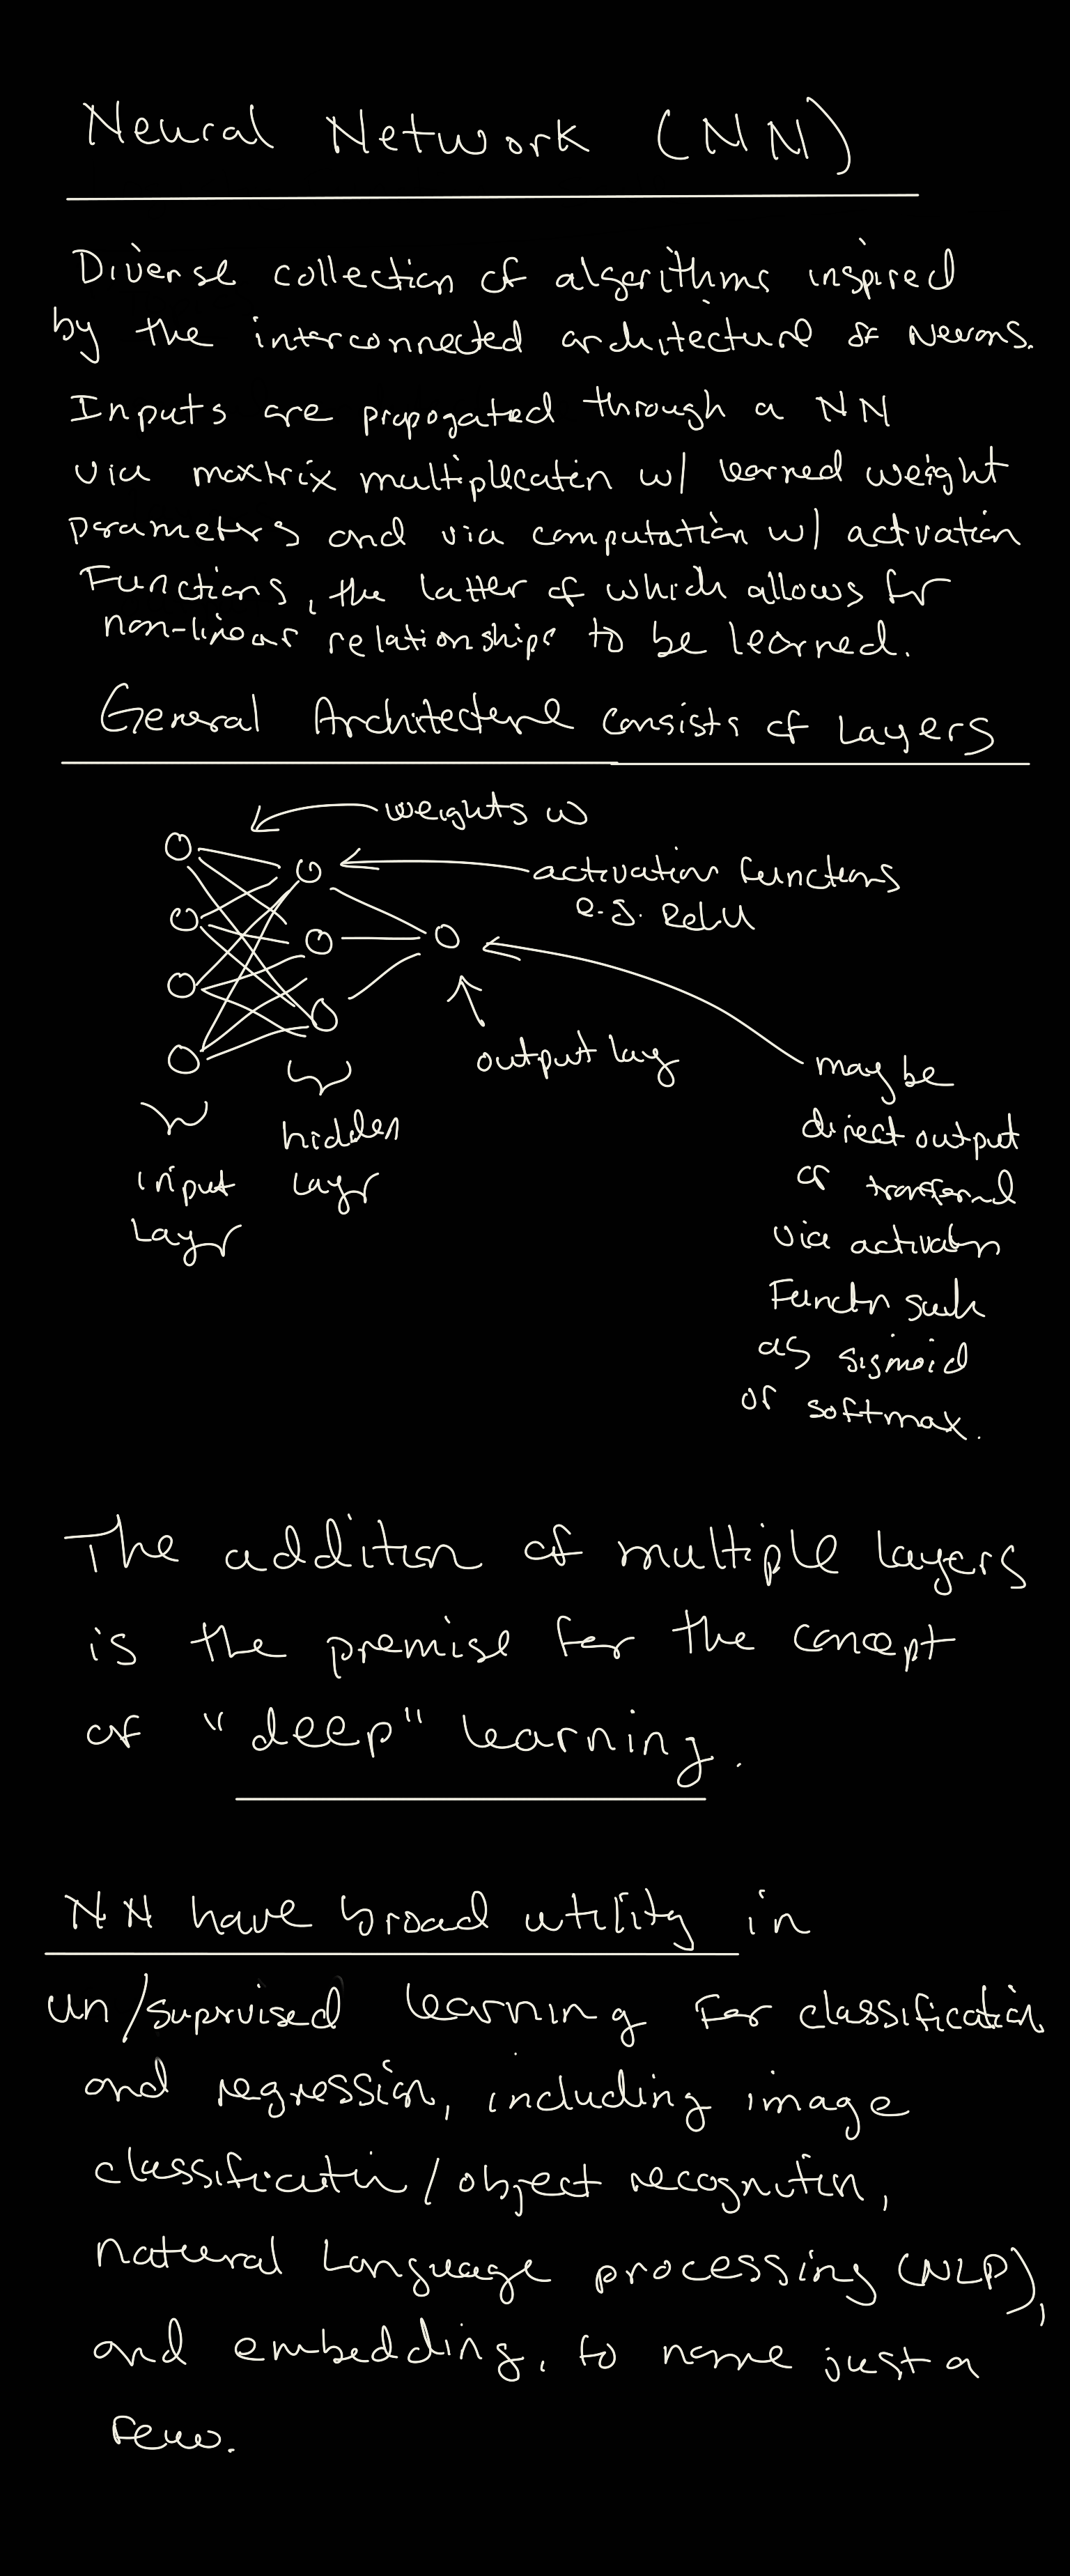 Neural Network (NN)
Diverse collection of algorithms inspired
by the interconnected architecture of Neurons.
Inputs are propogated through a NN
via maxtrix multiplecatin w/ learned weight
parameters and via computation w/ activation
Functions, the latter of which allows for
non-linear relationships to be learned.
General Architecture consists of Layers
weights w
activation functions
e.g. ReLU
output lay
may be
direct output
or transformed
via activatn
Functn such
as sigmoid
or softmax.
hidden
layr
input
Layr
The addition of multiple layers
is the premise for the concept
of "deep" learning.
NN have broad utility in
un/suprvised learning for classification
and regression, including image
classificatin/object recognitin,
natural Language processing (NLP),
and embedding, to name just a
few.